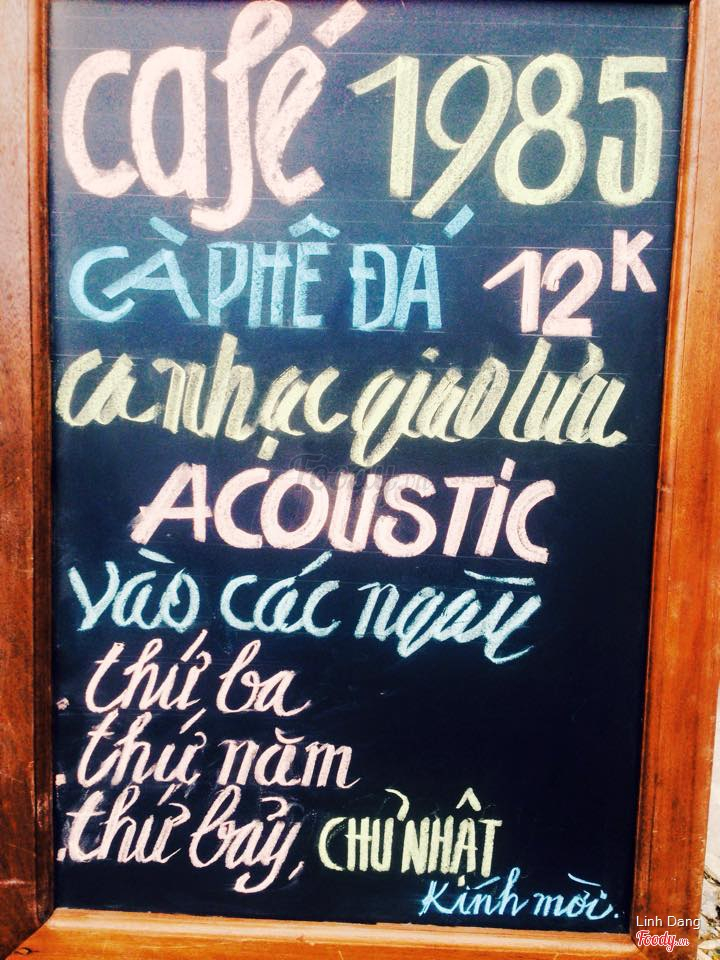 Café 1985
CÀ PHÊ ĐÁ 12K
ca nhạc giao lưu
ACOUSTIC
vào các ngày
. thứ ba
. thứ năm
. thứ bảy, CHỦ NHẬT
Kính mời.
Linh Dang
Foody.vn